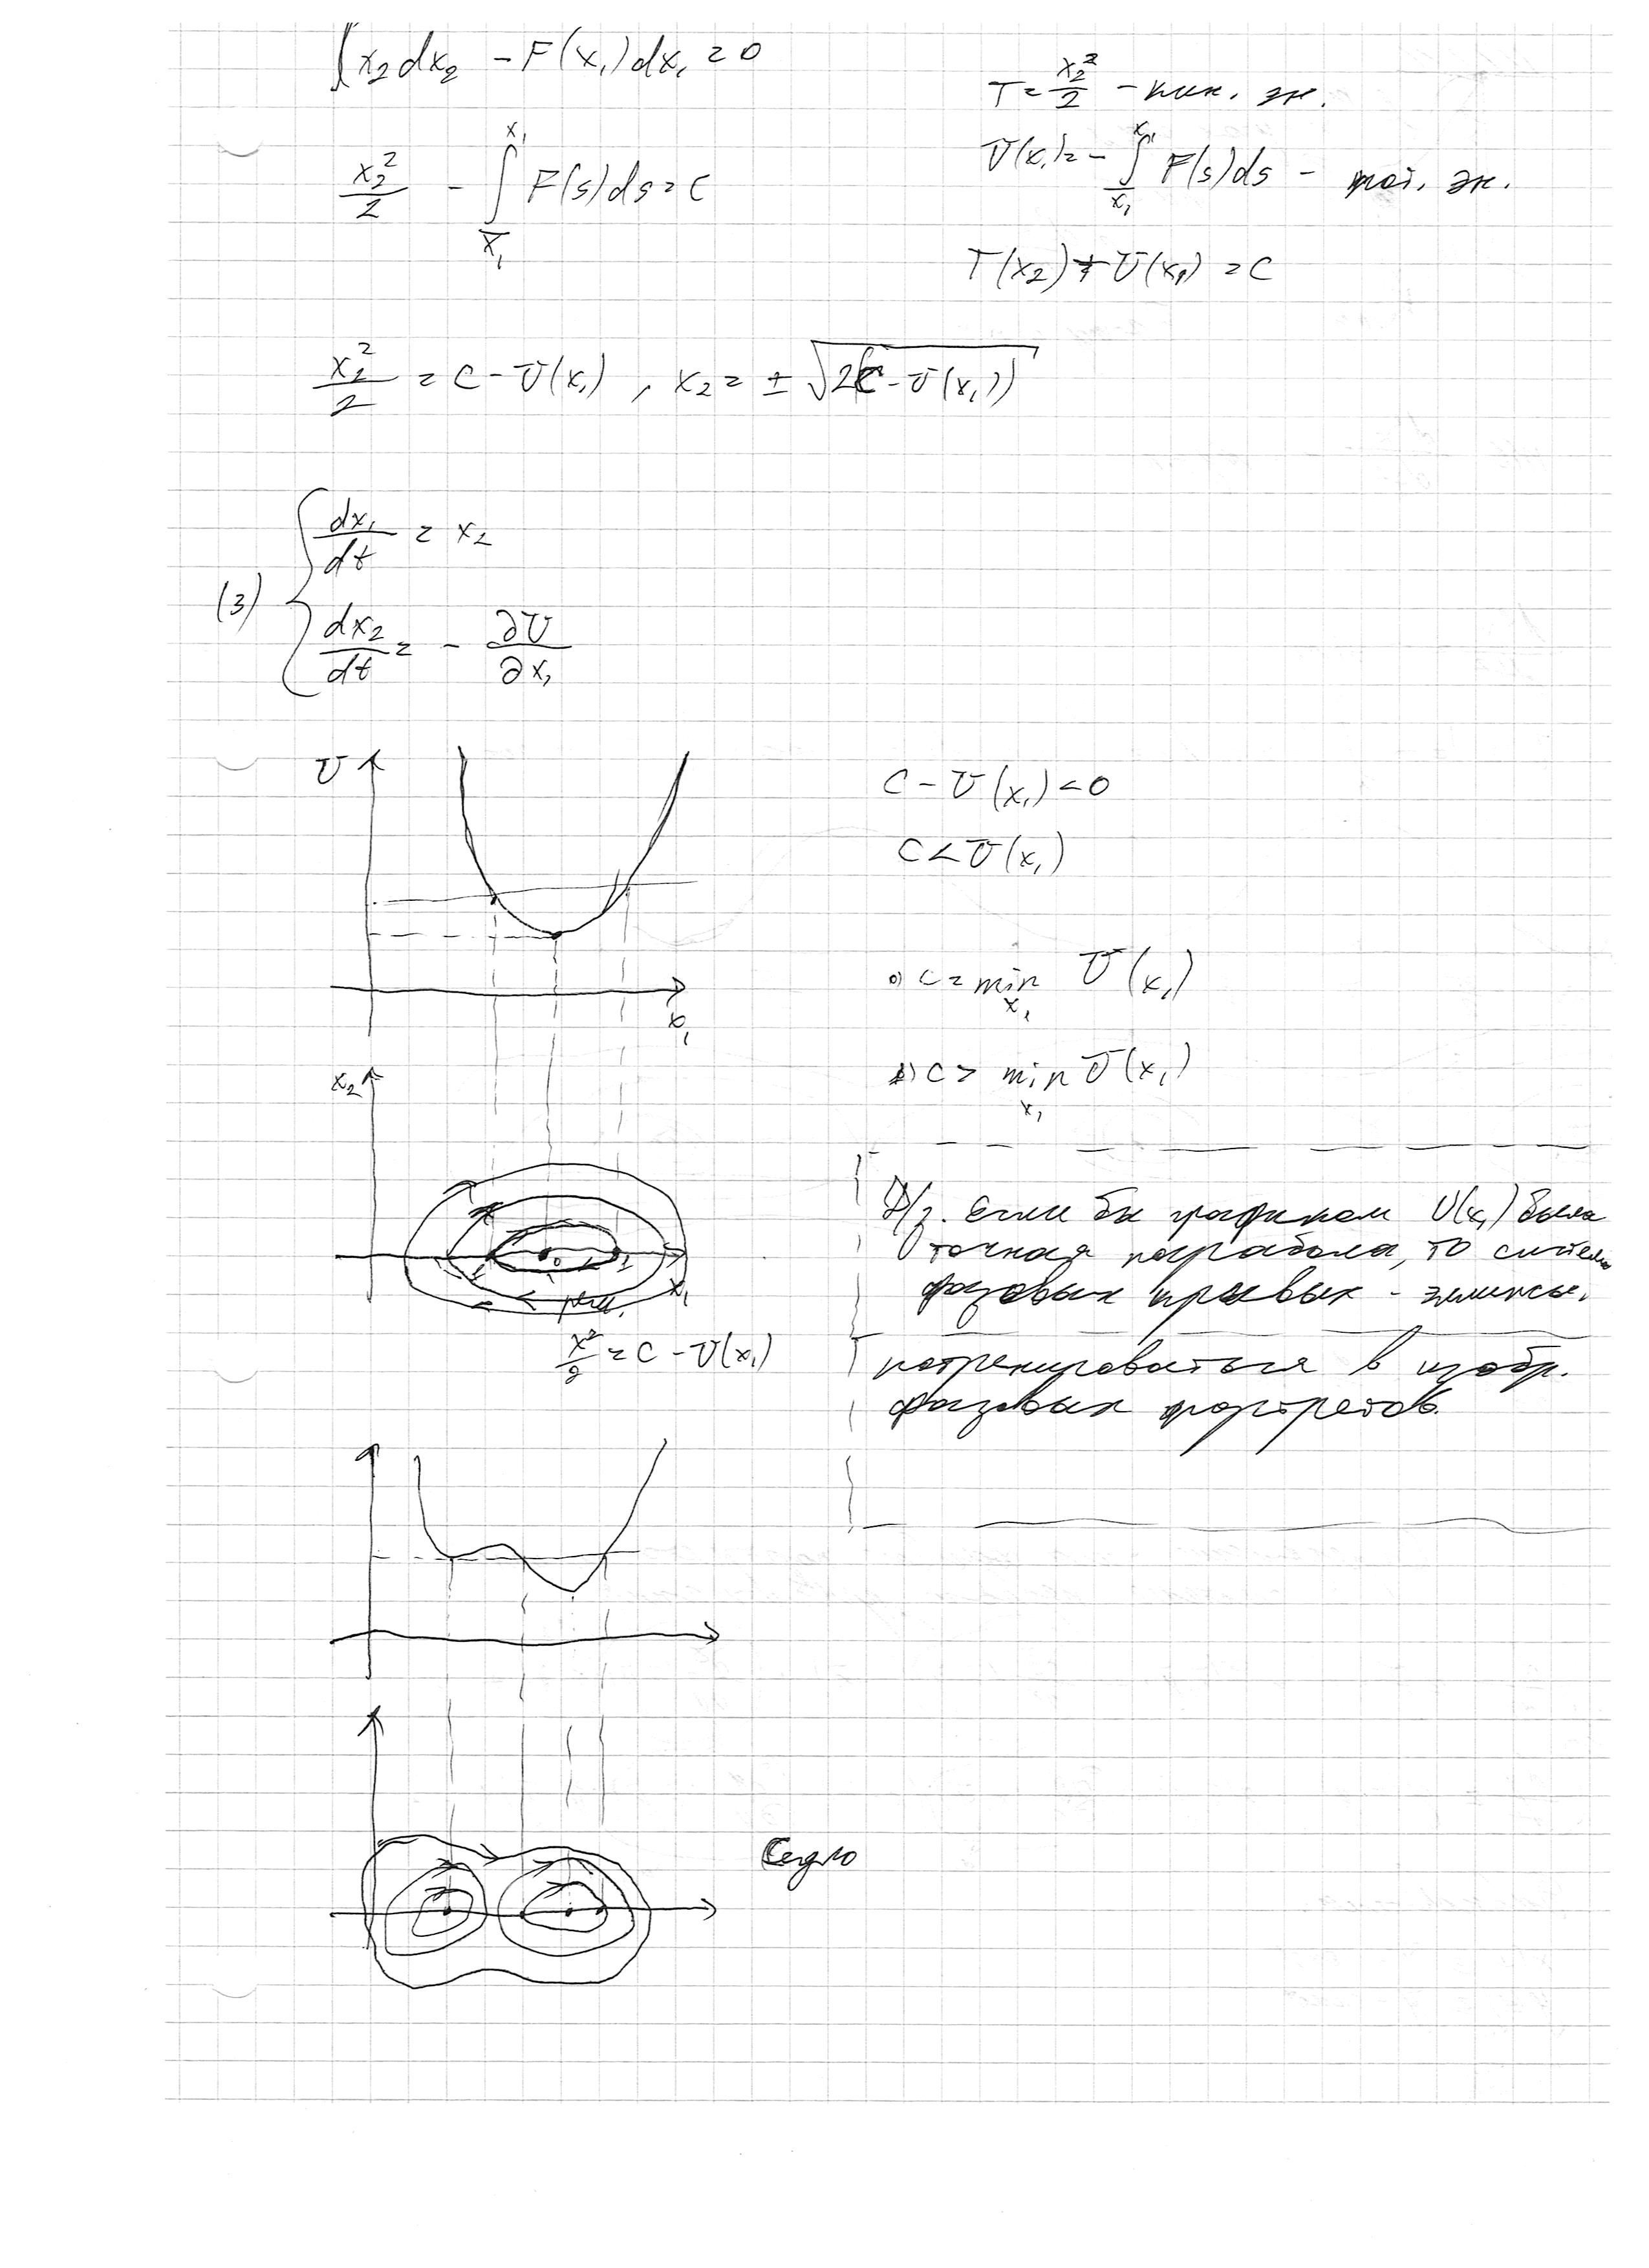 ∫x₂dx₂ - F(x₁)dx₁ = 0
T = x₂²/2 - кин. эн.
x₂²/2 - ∫_{x̄₁}^{x₁} F(s)ds = C
U(x₁) = - ∫_{x̄₁}^{x₁} F(s)ds - пот. эн.
T(x₂) + U(x₁) = C
x₂²/2 = C - U(x₁) , x₂ = ± √2(C - U(x₁))
(3) { dx₁/dt = x₂
dx₂/dt = - ∂U/∂x₁
U
C - U(x₁) < 0
C < U(x₁)
x₁
a) C = min_{x₁} U(x₁)
б) C > min_{x₁} U(x₁)
x₂
x₁
x²/2 = C - U(x₁)
Д/з. Если бы графиком U(x₁) была
точная парабола, то
фазовых кривых - эллипсы.
потренироваться в изобр.
фазовых портретов.
Седло